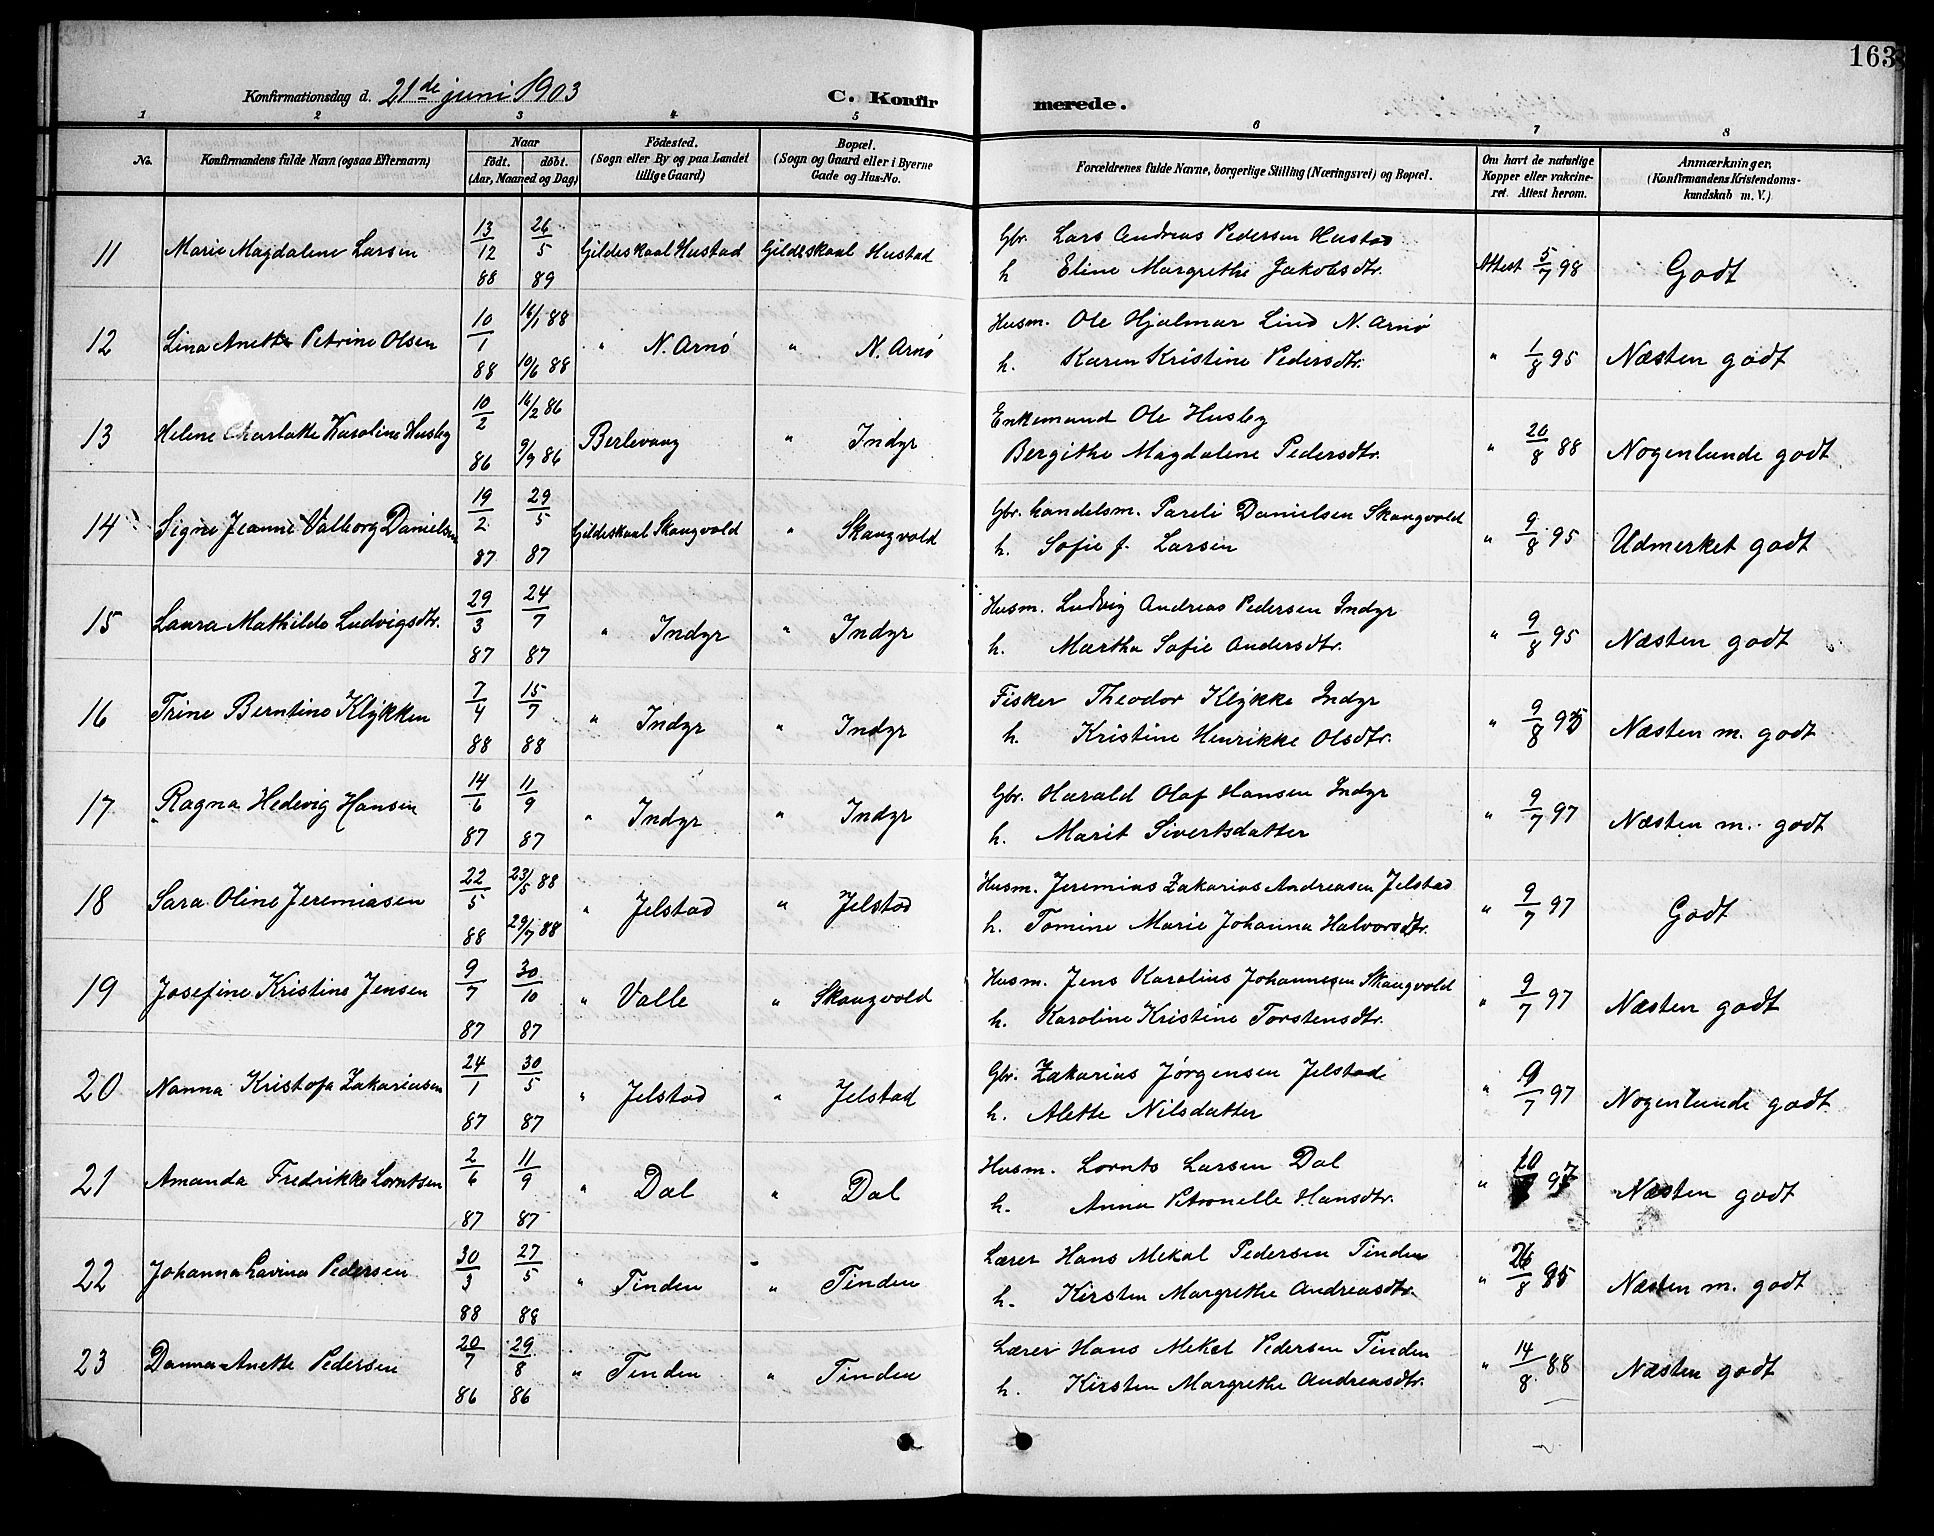 163
Konfirmationsdag d. 21de juni 1903
C. Konfirmerede.
1 2 3 4 5 6 7 8
No. Konfirmandens fulde Navn (ogsaa Efternavn) Naar født. døbt. (Aar, Maaned og Dag) Fødested. (Sogn eller By og paa Landet tillige Gaard) Bopæl. (Sogn og Gaard eller i Byerne Gade og Hus-No. Forældrenes fulde Navne, borgerlige Stilling (Næringsvei) og Bopæl. Om havt de naturlige Kopper eller vakcineret. Attest herom. Anmærkninger. (Konfirmandens Kristendomskundskab m. V.)
11 Marie Magdalene Larsen 13/12 88 26/5 89 Gildeskaal Hustad Gildeskaal Hustad Gbr. Lars Andreas Pedersen Hustad Attest 5/7 98 Godt
h Eline Margrethe Jakobsdtr.
12 Lina Anette Petrine Olsen 10/1 88 16/1 88 10/6 88 " N. Arnø " N. Arnø Husm. Ole Hjalmar Lind N. Arnø " 1/8 95 Næsten godt
h. Karen Kristine Pedersdtr.
13 Helene Charlotte Karoline Husby 10/2 86 16/2 86 9/9 86 Berlevaag " Indyr Enkemand Ole Husby " 20/8 88 Nogenlunde godt
Bergithe Magdalene Pedersdtr.
14 Signe Jeanne Valborg Danielsen 19/2 87 29/5 87 Gildeskaal Skaugvold " Skaugvold Gbr. handelsm. Pareli Danielsen Skaugvold " 9/8 95 Udmerket godt
h. Sofie J. Larsen
15 Laura Mathilde Ludvigsdtr. 29/3 87 24/7 87 " Indyr " Indyr Husm. Ludvig Andreas Pedersen Indyr " 9/8 95 Næsten godt
h. Martha Sofie Andersdtr.
16 Trine Berntine Klykken 7/4 88 15/7 88 " Indyr " Indyr Fisker Theodor Klykke Indyr " 9/8 95 Næsten m. godt
h. Kristine Henrikke Olsdtr.
17 Ragna Hedevig Hansen 14/6 87 11/9 87 " Indyr " Indyr Gbr. Harald Olaf Hansen Indyr " 9/7 97 Næsten m. godt
h. Marit Sivertsdatter
18 Sara Oline Jeremiasen 22/5 88 23/5 88 29/7 88 " Jelstad " Jelstad Husm. Jeremias Zakarias Andreasen Jelstad " 9/7 97 Godt
h. Tomine Marie Johanna Halvorsdtr.
19 Josefine Kristine Jensen 9/7 87 30/10 87 " Valle " Skaugvold Husm. Jens Karolius Johannesen Skaugvold " 9/7 97 Næsten godt
h. Karoline Kristine Torstensdtr.
20 Nanna Kristofa Zakariasen 24/1 87 30/5 87 " Jelstad " Jelstad Gbr. Zakarias Jørgensen Jelstad " 9/7 97 Nogenlunde godt
h. Alette Nilsdatter
21 Amanda Fredrikke Lorntsen 2/6 87 11/9 87 " Dal " Dal Husm. Lornts Larsen Dal " 97 Næsten godt
h. Anna Petronelle Hansdtr.
22 Johanna Lavina Pedersen 30/3 88 27/5 88 " Tinden " Tinden Lærer Hans Mekal Pedersen Tinden " 26/8 95 Næsten m. godt
h. Kirsten Margrethe Andreasdtr.
23 Danna Anette Pedersen 20/7 86 29/8 86 " Tinden " Tinden Lærer Hans Mekal Pedersen Tinden " 14/8 88 Næsten godt
h. Kirsten Margrethe Andreasdtr.